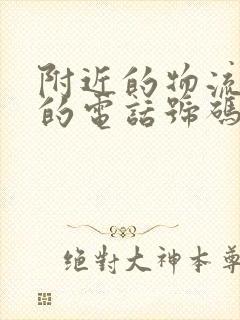 附近的物流
的電話號碼
絕對大神本尊